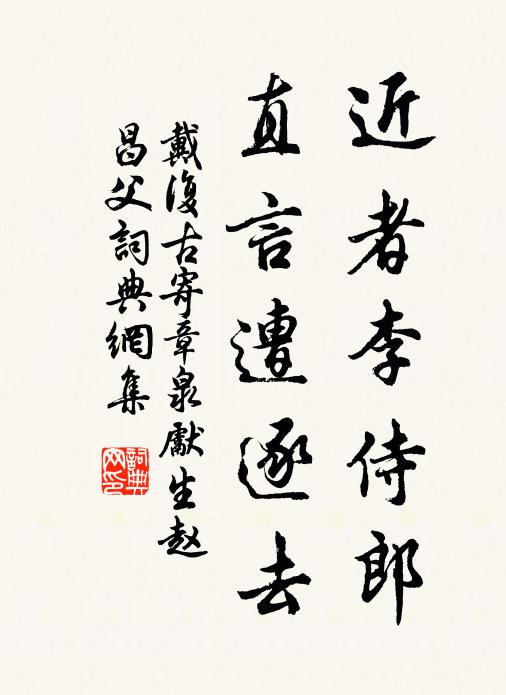 近者李侍郎
直言遭逐去
戴復古寄章泉獻生赵
昌父詞典網集
詞典网印